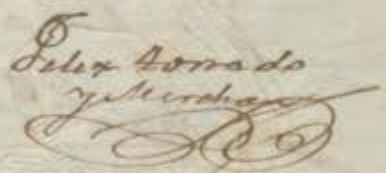 Felix Horrado
y Merchan